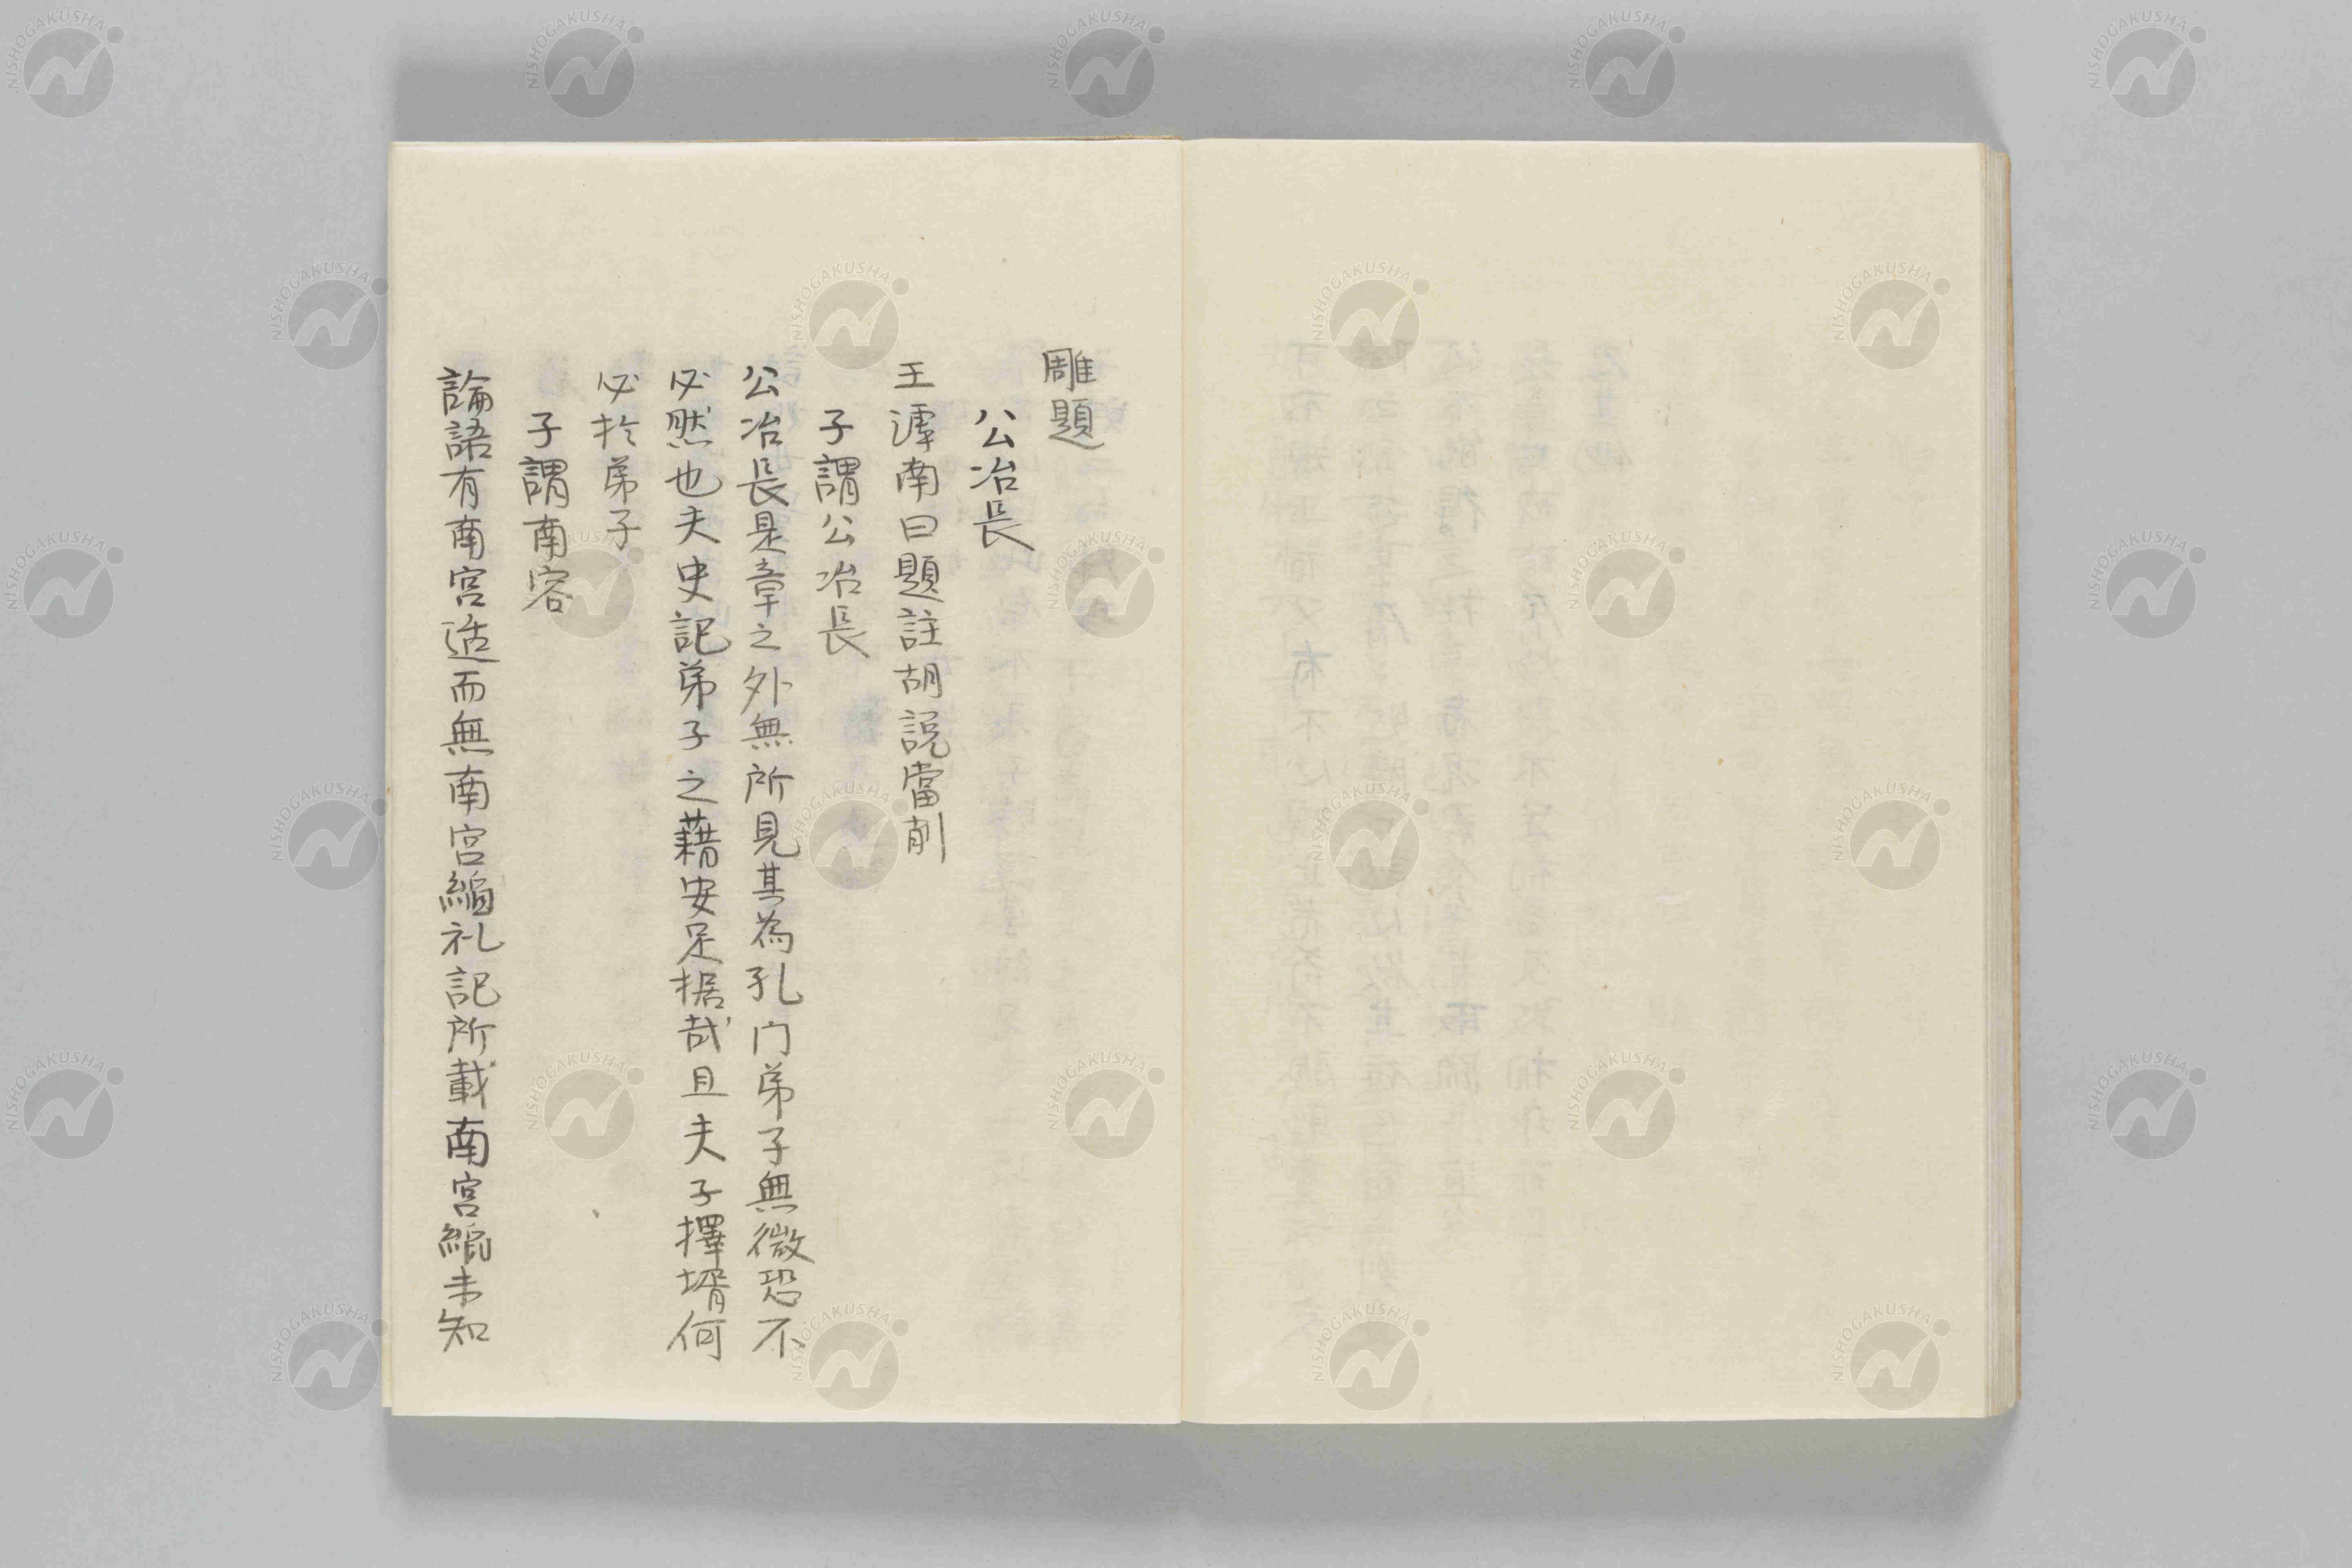 雕題
公冶長
王滹南曰題註胡説當削
子謂公冶長
公冶長是章之外無所見其為孔门弟子無微恐不
必然也夫史記弟子之藉安足据哉且夫子擇壻何
必於弟子
子謂南容
論語有南宮适而無南宮縚礼記所載南宮縚未知